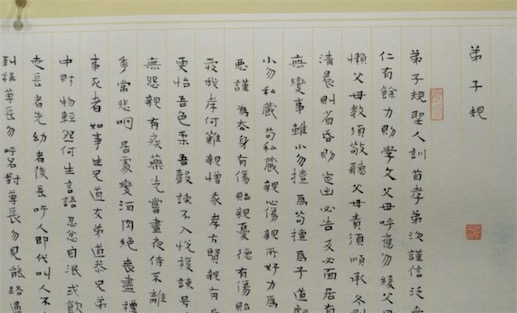 弟子規
弟子規聖人訓首孝弟次謹信泛愛
仁有餘力則學文父母呼應勿緩父母
懶父母教須敬聽父母責須順承冬則
清晨則省昏則定出必告反必面居有
無變事雖小勿擅爲苟擅爲子道虧
小勿私藏苟私藏親心傷親所好力爲
惡謹爲去身有傷貽親憂德有傷貽
愛我孝何難親憎我孝方賢親有
更怡吾色柔吾聲諫不入悅復諫號
無怨親有疾藥先嘗晝夜侍不離
年常悲咽居處變酒肉絕喪盡禮
事死者如事生兄道友弟道恭兄弟
中財物輕怨何生言語忍忿自泯或飲
走長者先幼者後長呼人即代叫人不
到稱尊長勿呼名對尊長勿見能路遇